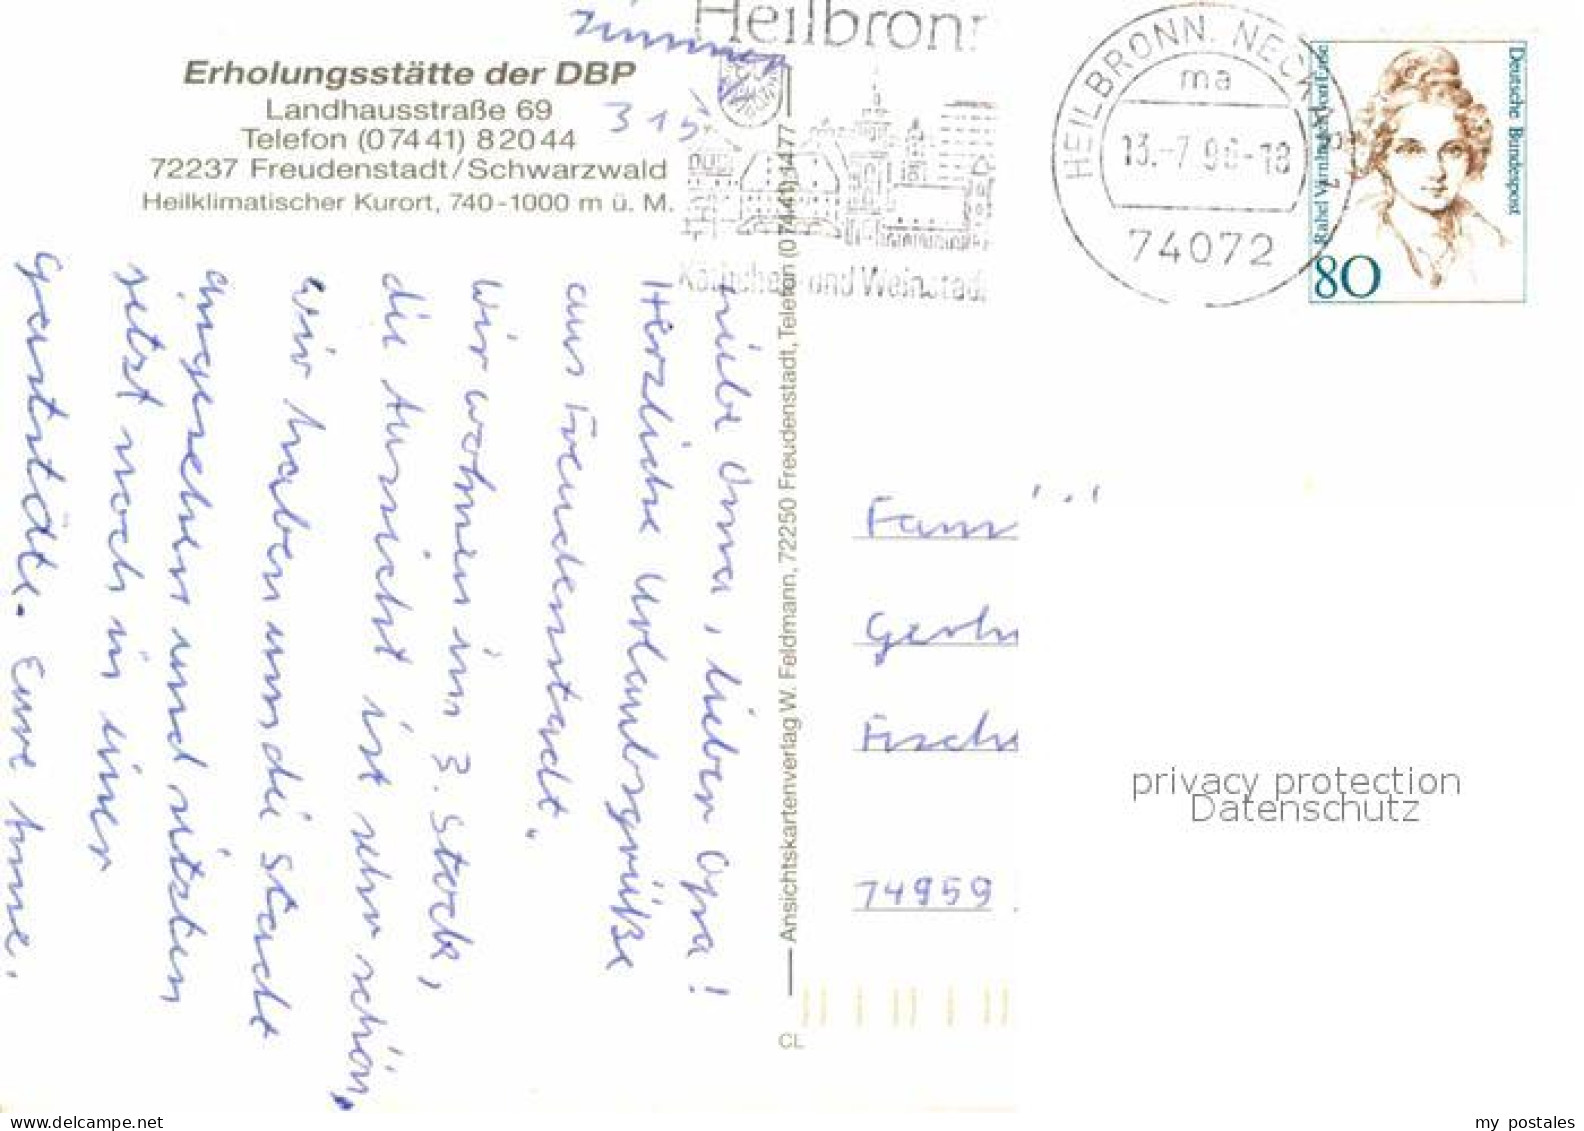 Zimmer
315
Heilbronn
Erholungsstätte der DBP
Landhausstraße 69
Telefon (07441) 82044
72237 Freudenstadt/Schwarzwald
Heilklimatischer Kurort, 740-1000 m ü. M.
und Weinstadt
HEILBRONN, NECKAR
ma
13.-7.96-18
74072
Deutsche Bundespost
Rahel Varnhagen von Ense
80
Liebe Oma, lieber Opa!
Herzliche Urlaubsgrüße
aus Freudenstadt.
Wir wohnen im 3. Stock,
die Aussicht ist sehr schön,
wir haben um die Stadt
angesehen und sitzen
jetzt noch in einer
Gaststätte. Eure Anne.
Ansichtskartenverlag W. Feldmann, 72250 Freudenstadt, Telefon (07441) 1477
CL
Fam
Gerh
Fisch
74959
privacy protection
Datenschutz
www.delcampe.net
my_postales